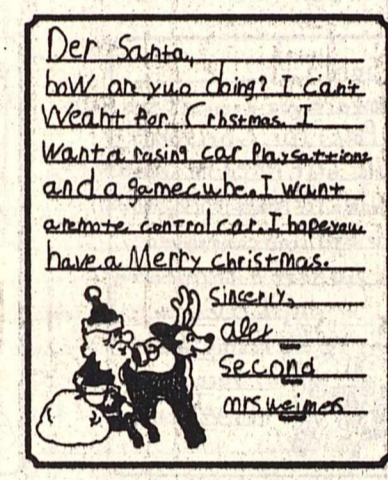 Der Santa,
how are yuo doing? I can't
Weaht for Crhstmas. I
want a rasing car Playsattionz
and a gamecube. I want
a remote control car. I hope you
have a Merry christmas.
Sincerly,
alex
Second
mrs weimer